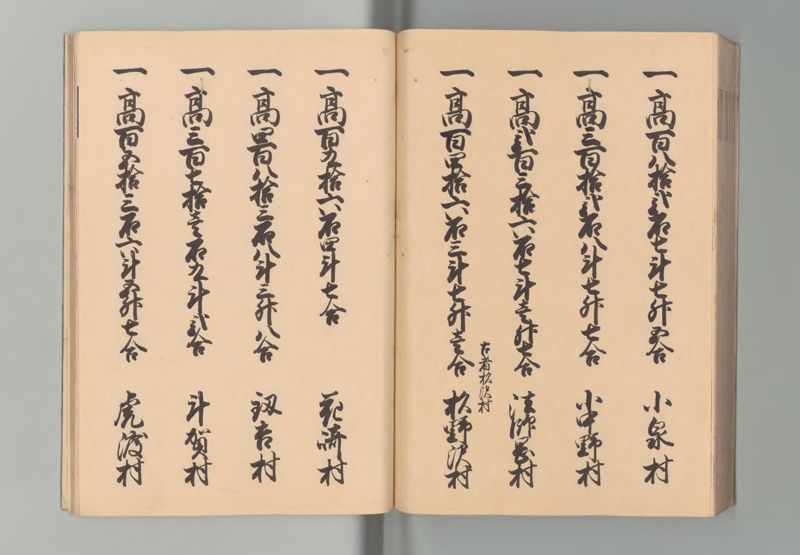 一高百八拾弐石七斗七升五合 小泉村
一高三百拾弐石八斗七升七合 小中野村
一高弐百三拾六石七斗壱升七合 法師岡村
一高百四拾六石三斗七升壱合 杉野沢村
古者杉沢村
一高百九拾六石四斗七合 苑濟村
一高四百八拾三石八斗三升八合 剱吉村
一高三百七拾壱石九斗弐合 斗賀村
一高百五拾三石六斗五升七合 虎渡村